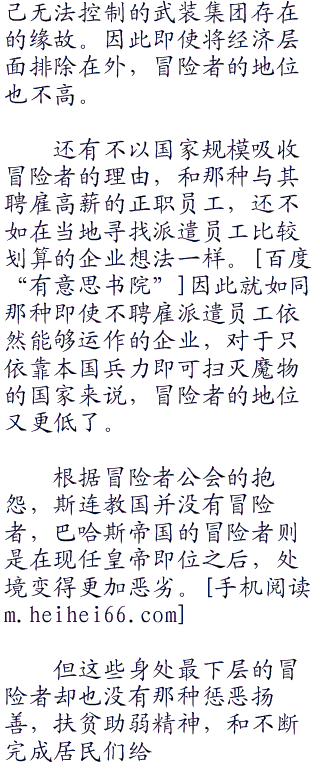 己无法控制的武装集团存在
的缘故。因此即使将经济层
面排除在外，冒险者的地位
也不高。
还有不以国家规模吸收
冒险者的理由，和那种与其
聘雇高薪的正职员工，还不
如在当地寻找派遣员工比较
划算的企业想法一样。[百度
“有意思书院”]因此就如同
那种即使不聘雇派遣员工依
然能够运作的企业，对于只
依靠本国兵力即可扫灭魔物
的国家来说，冒险者的地位
又更低了。
根据冒险者公会的抱
怨，斯连教国并没有冒险
者，巴哈斯帝国的冒险者则
是在现任皇帝即位之后，处
境变得更加恶劣。[手机阅读
m.heihei66.com]
但这些身处最下层的冒
险者却也没有那种惩恶扬
善，扶贫助弱精神，和不断
完成居民们给